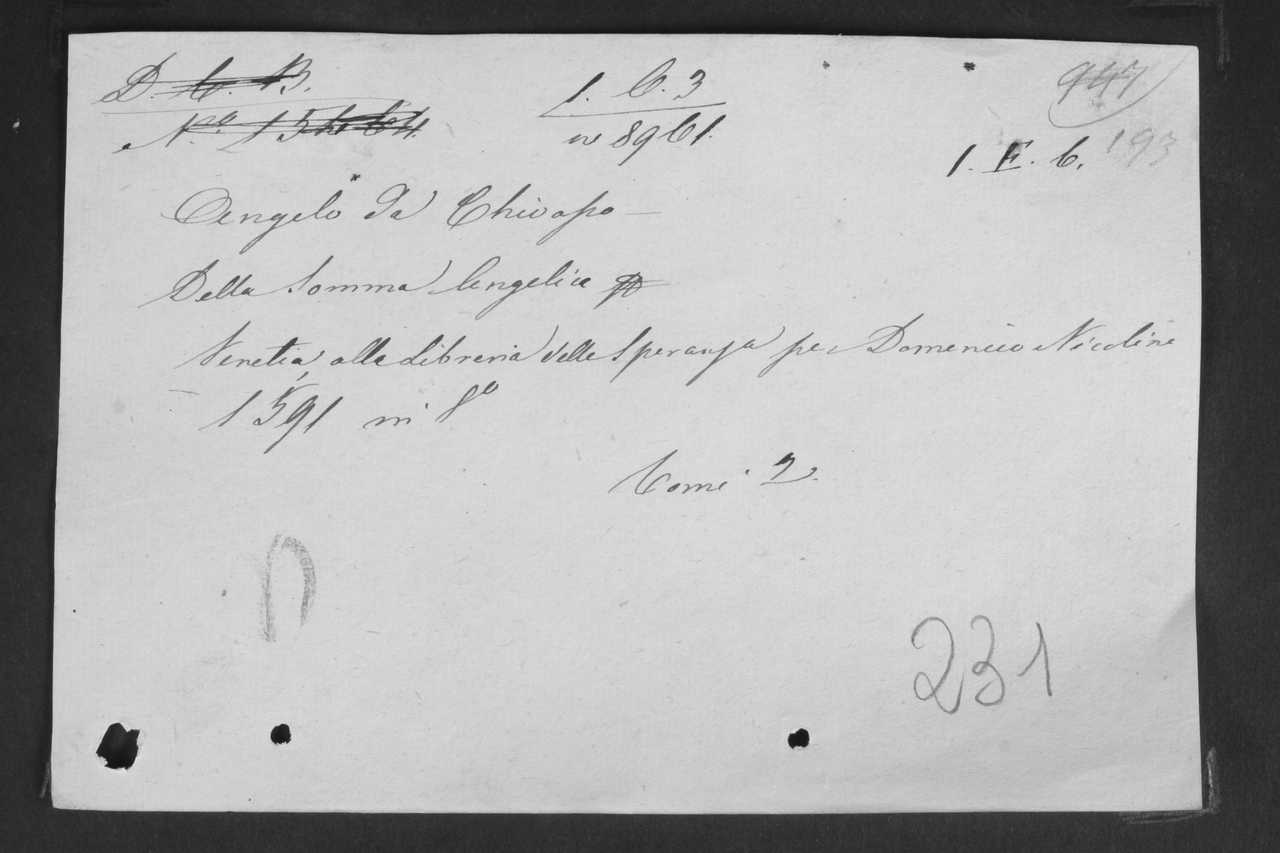 D. C. B.
1. C. 3
947
N.º 15464
n 8961.
1. E. 6.
193
Angelo da Chivasso
Della Somma Angelica
Venetia, alla Libreria della Speranza per Domenico Nicolini
1591 in 8º
Tomi 2.
231